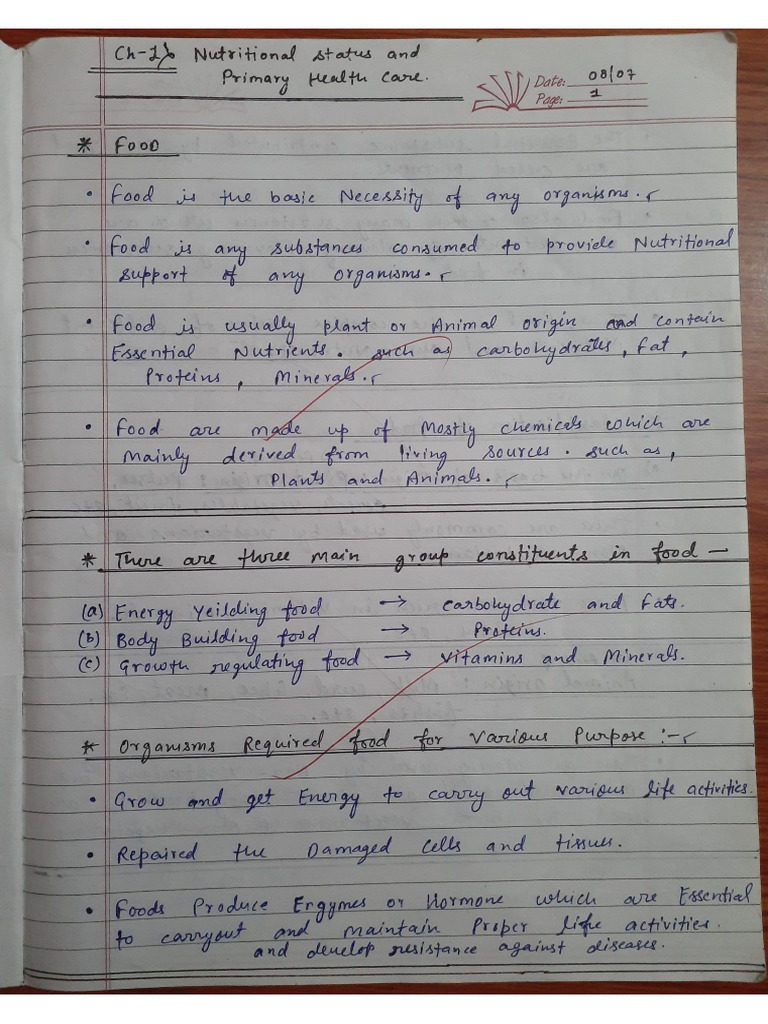 Ch-1
Nutritional status and
Primary Health Care.
Date: 08/07
Page: 1
* FOOD
• Food is the basic Necessity of any organisms.
• Food is any substances consumed to provide Nutritional
support of any organisms.
• Food is usually plant or Animal origin and contain
Essential Nutrients. such as carbohydrates, Fat,
Proteins, Minerals.
• Food are made up of Mostly chemicals which are
Mainly derived from living sources. such as,
Plants and Animals.
* There are three main group constituents in food —
(a) Energy Yeilding food → Carbohydrate and Fats.
(b) Body Building food → Proteins.
(c) Growth regulating food → Vitamins and Minerals.
* Organisms Required food for Various Purpose :-
• Grow and get Energy to carry out various life activities.
• Repaired the Damaged Cells and tissues.
• Foods Produce Engymes or Hormone which are Essential
to carryout and maintain Proper life activities.
and develop resistance against diseases.